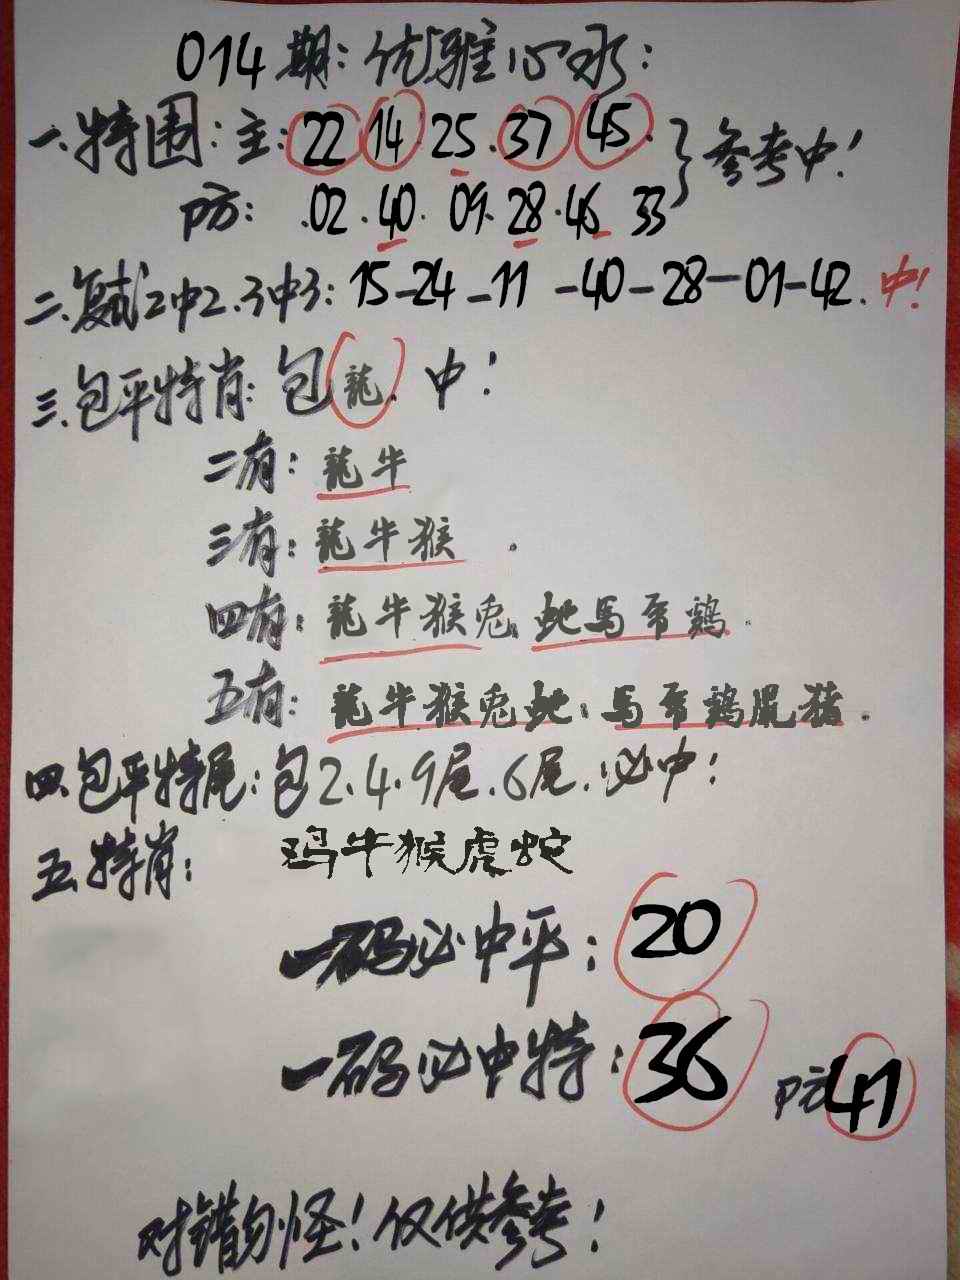 014期：优雅心水：
一.特围：主：22 14 25.37 45. 参考中！
防：.02.40.09.28.46 33
二.复式2中2.3中3：15-24-11-40-28-01-42.中！
三.包平特肖：包龍.中！
二有：龍牛
三有：龍牛猴.
四有：龍牛猴兎.蛇馬羊鶏.
五有：龍牛猴兎蛇.馬羊鶏鼠猪.
四.包平特尾：包2.4.9尾.6尾.必中！
五.特肖：鸡牛猴虎蛇
一码必中平：20
一码必中特：36 防41
对错勿怪！仅供参考！